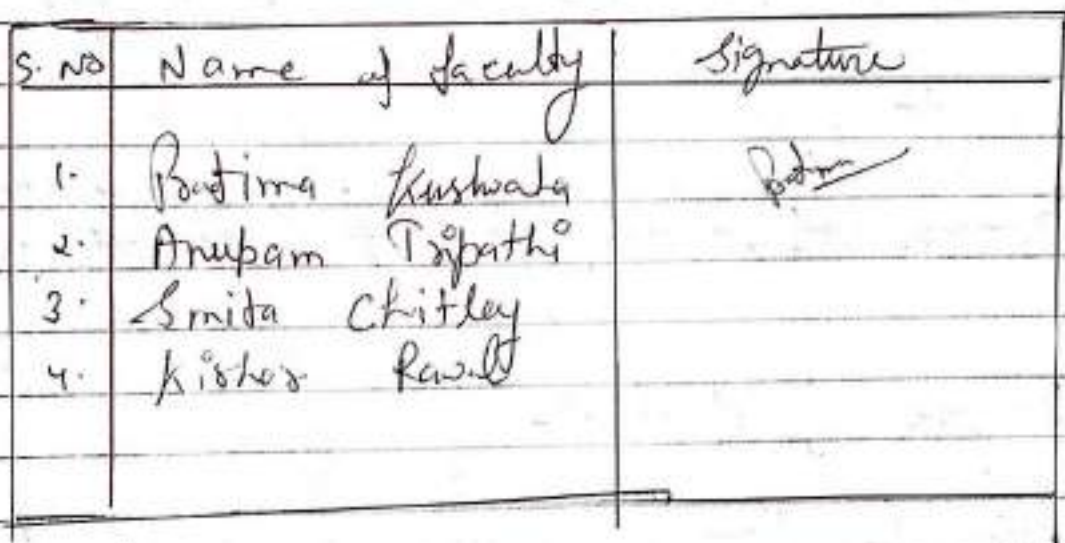 S. No Name of faculty Signature
1. Pratima Kushwaha Pratima
2. Anupam Tripathi
3. Smita Chitley
4. Kishor Rawal